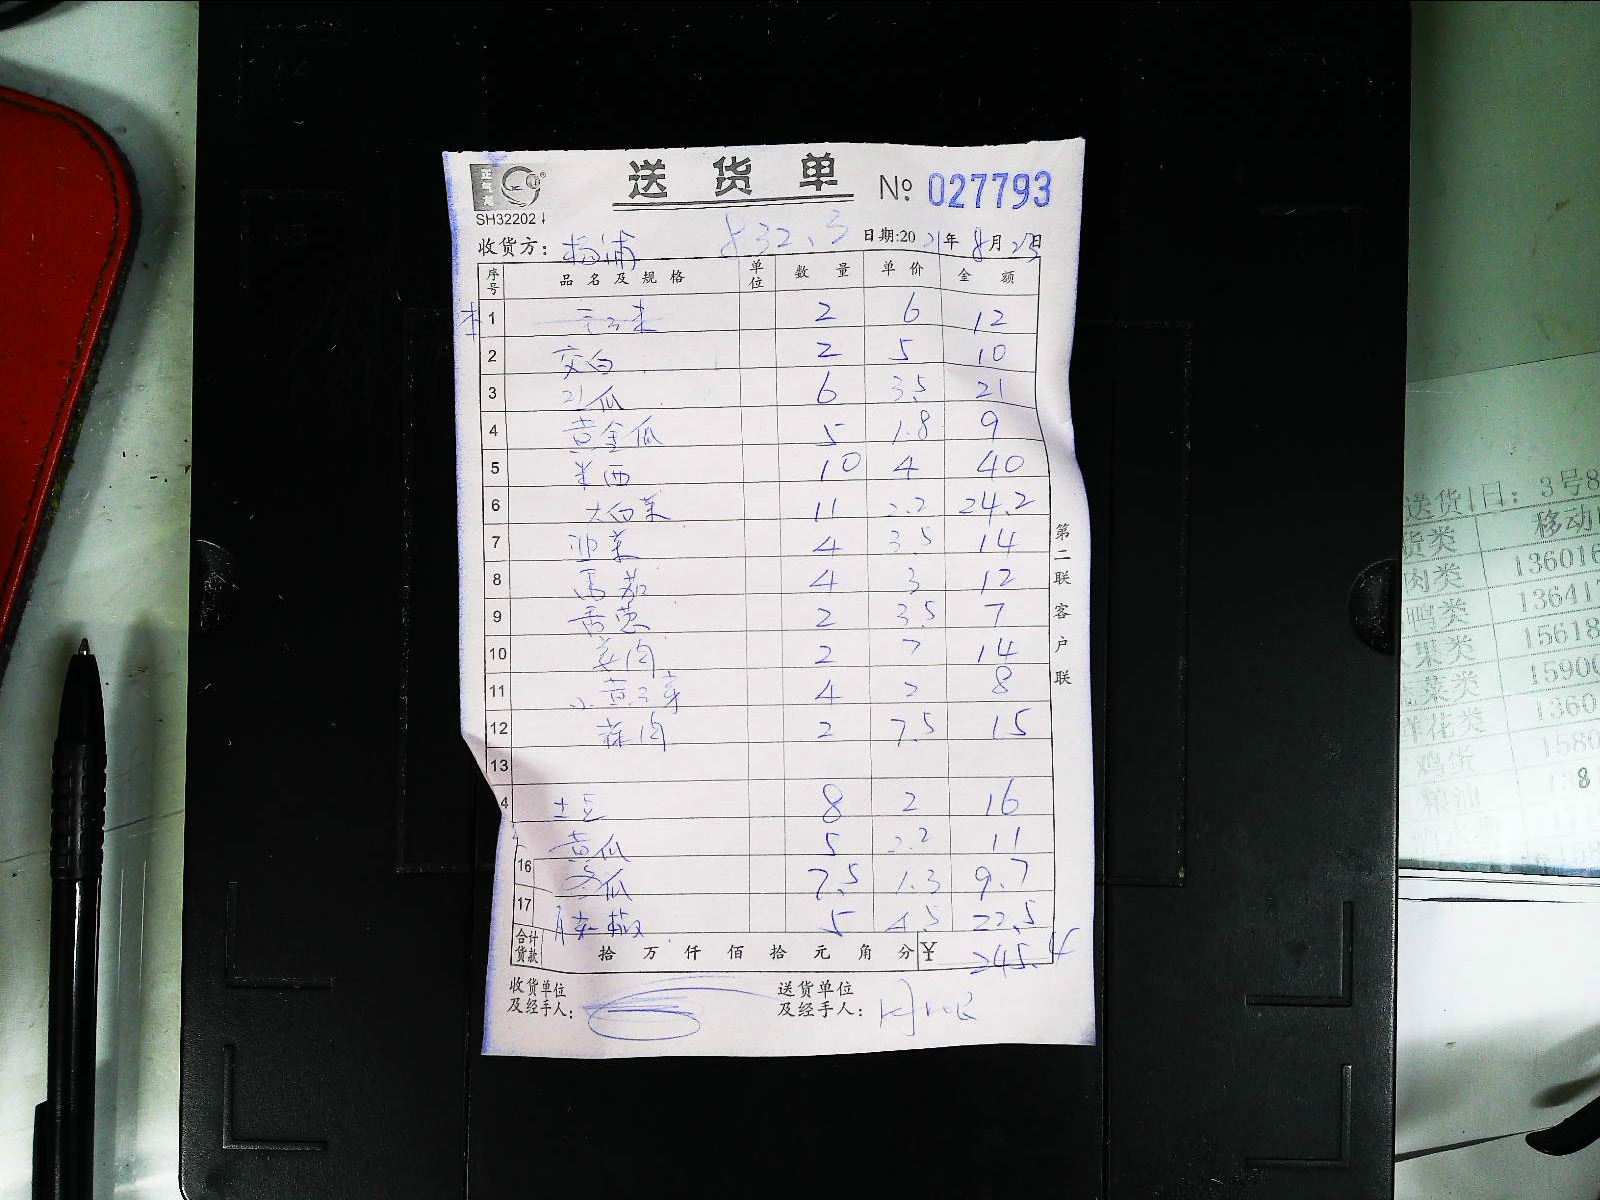 正气鸟
送货单 № 027793
SH32202↓
832.3
收货方: 杨浦 日期:2021年8月23日
序号 品名及规格 单位 数量 单价 金额
1 2 6 12
2 交白 2 5 10
3 刁瓜 6 3.5 21
4 黄金瓜 5 1.8 9
5 米西 10 4 40
6 大白菜 11 2.2 24.2
7 4 3.5 14
8 4 3 12
9 香葱 2 3.5 7
10 姜肉 2 7 14
11 小黄 4 2 8
12 蒜肉 2 7.5 15
13
4 土豆 8 2 16
黄瓜 5 2.2 11
16 冬瓜 7.5 1.3 9.7
17 椒 5 4.5 22.5
合计货款 拾万仟佰拾元角分 ¥ 245.4
收货单位及经手人: 送货单位及经手人:
第二联 客户联
送货1日: 3号8
货类 移动
肉类 136016
鸭类 13641
果类 15618
蔬菜类 15900
鲜花类 1360
鸡蛋 1580
粮油